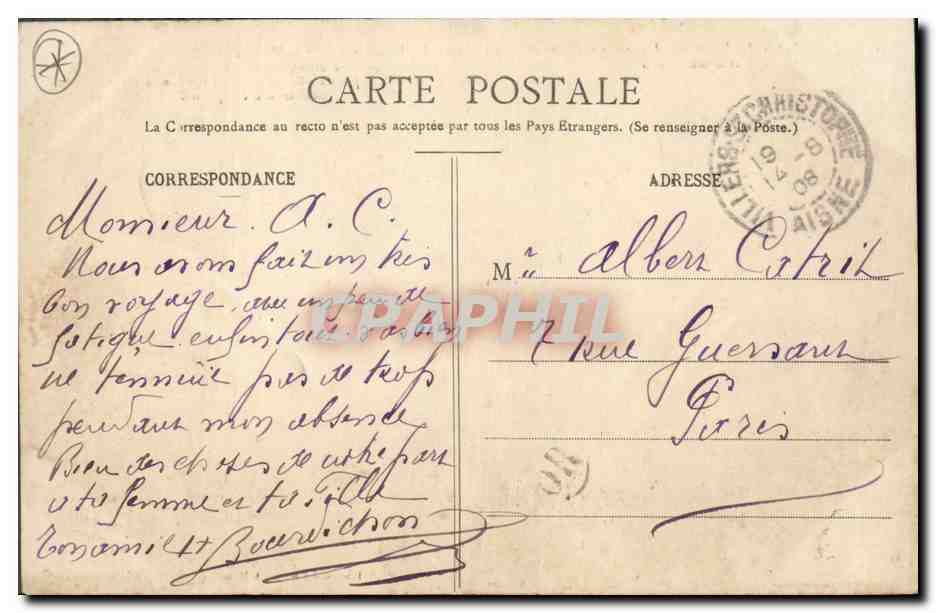 CARTE POSTALE
La Correspondance au recto n'est pas acceptée par tous les Pays Etrangers. (Se renseigner à la Poste.)
CORRESPONDANCE
ADRESSE
VILLERS-ST CHRISTOPHE
19 - 8
14 08
AISNE
Monsieur. A. C.
Nous avons fait un très
bon voyage avec un peu de
fatigue enfin tout va bien
ne t'ennuie pas de trop
pendant mon absence
Bien des choses de notre part
a ta femme et ta fille
Ton ami Bourdichon
Mr Albert Catrit
7 rue Guersant
Paris
OR
CPAPHIL